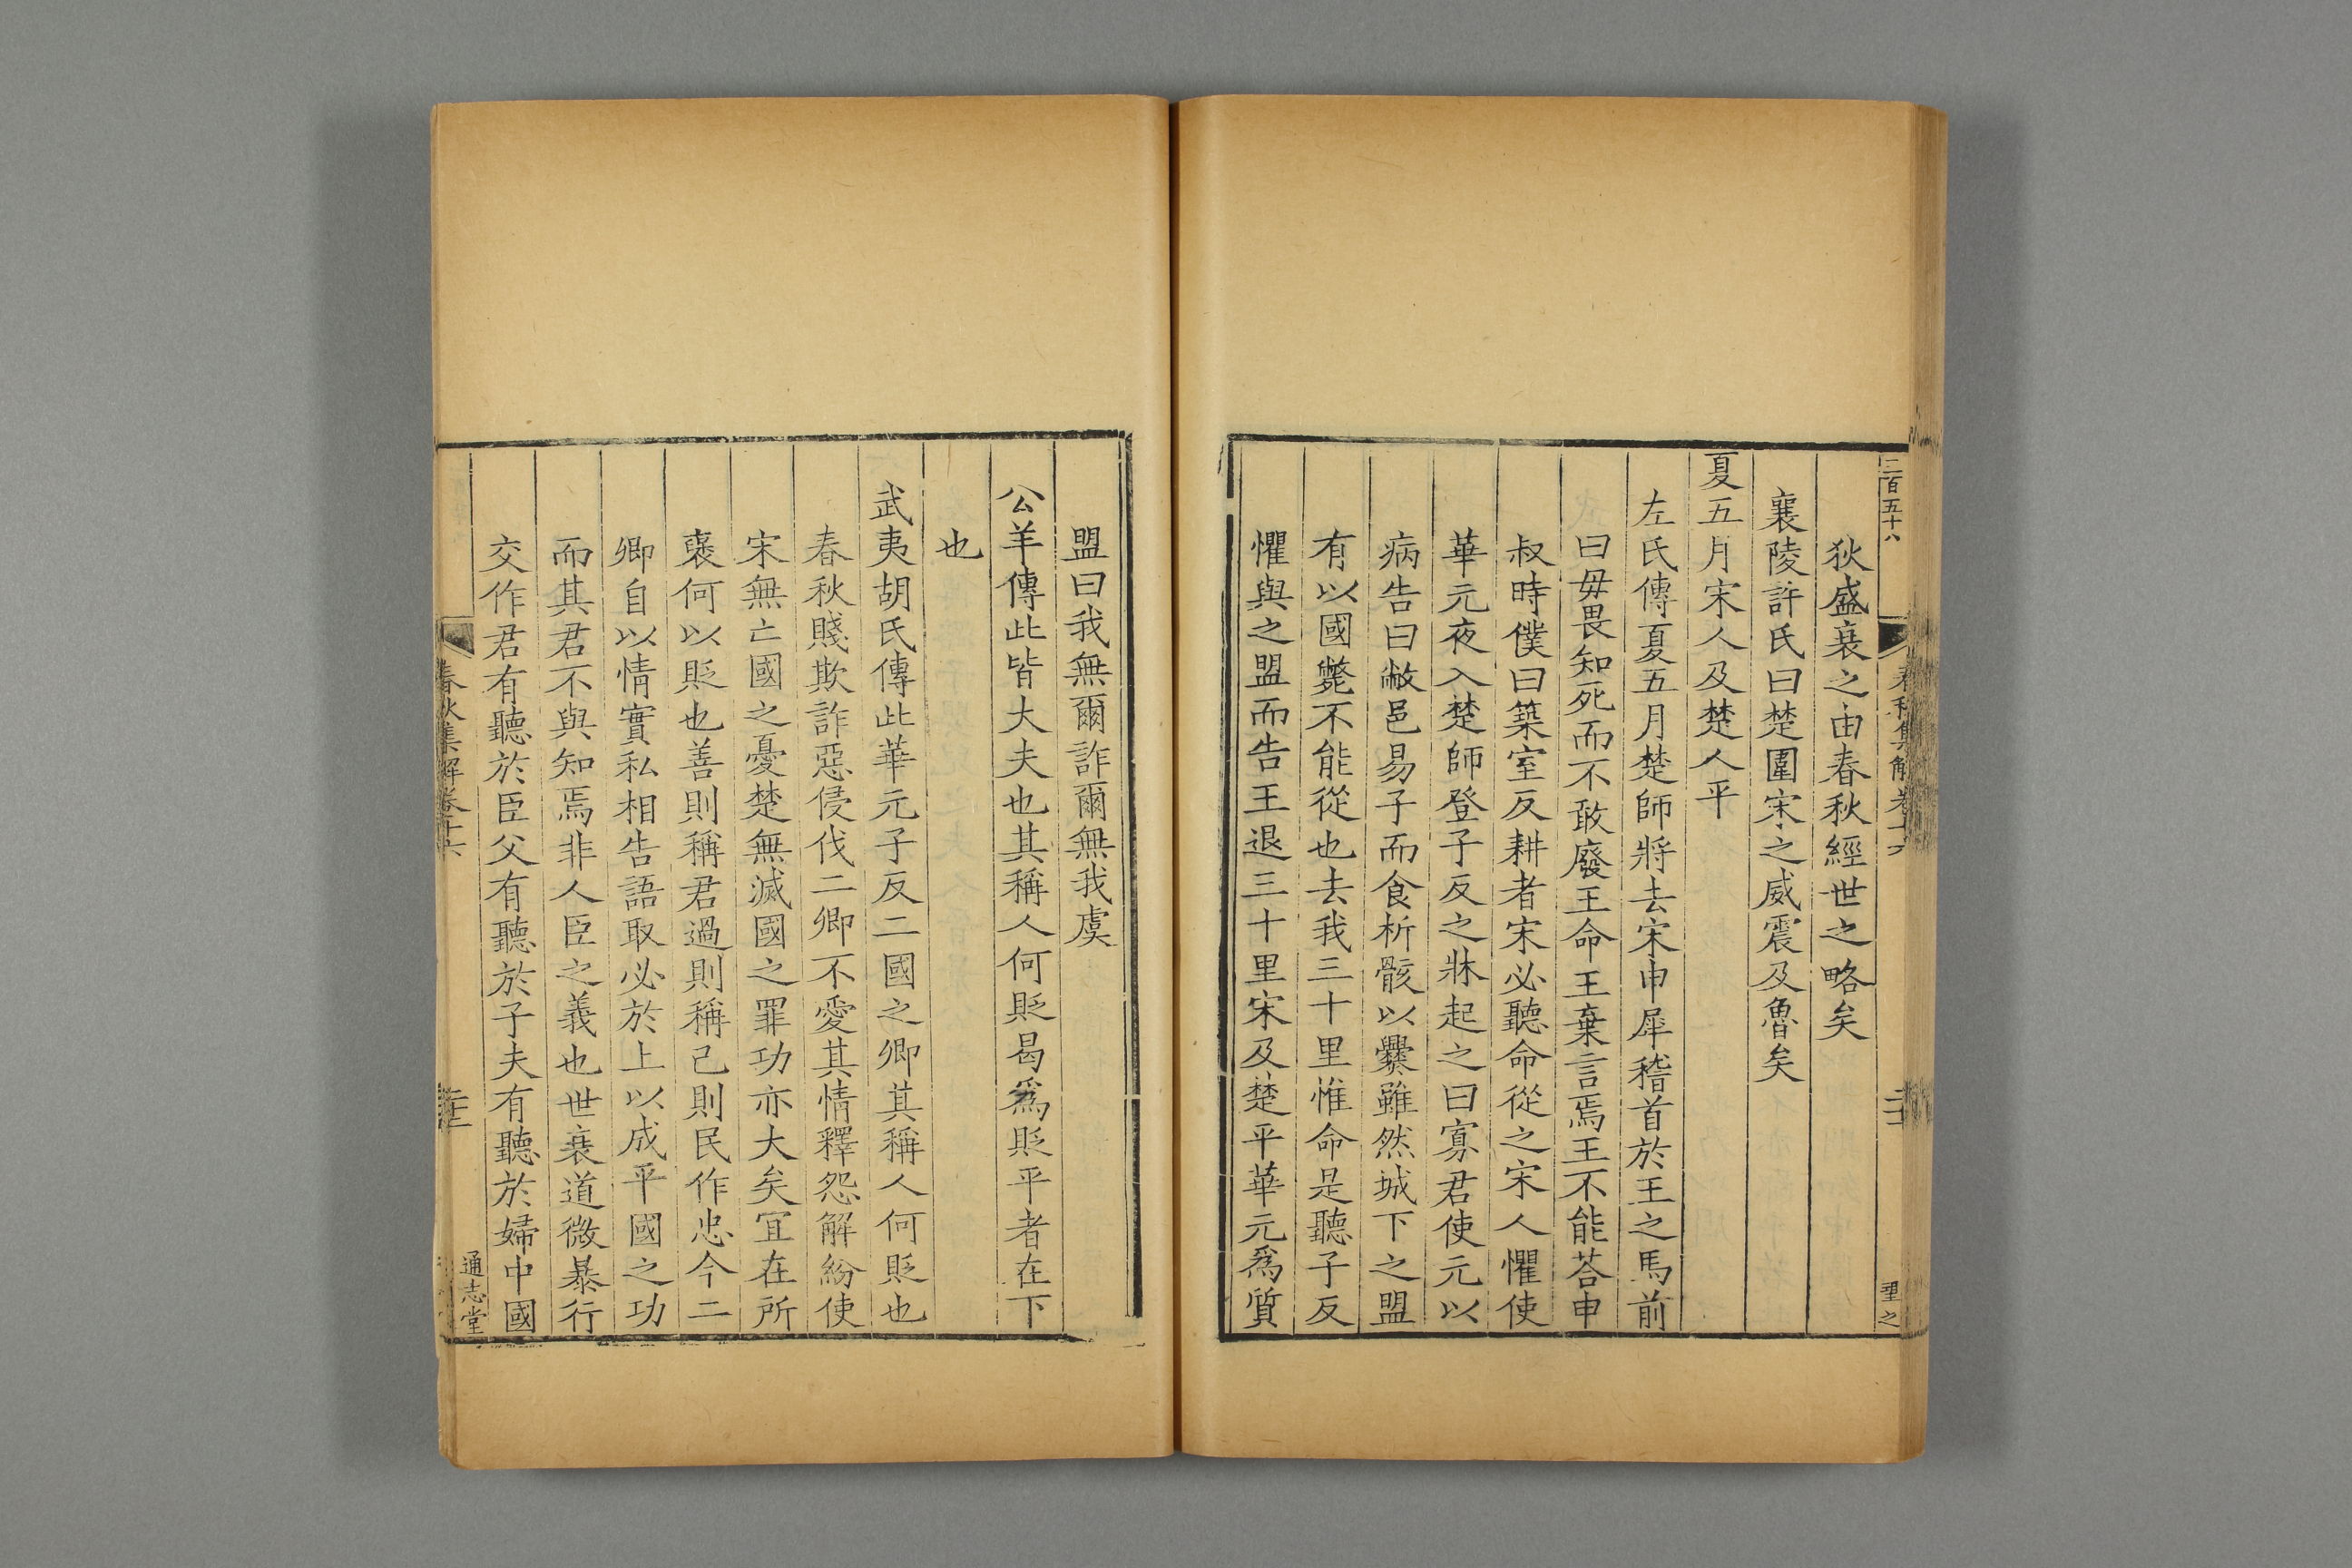 二百五十八
狄盛衰之由春秋經世之略矣
襄陵許氏曰楚圍宋之威震及魯矣
夏五月宋人及楚人平
左氏傳夏五月楚師將去宋申犀稽首於王之馬前
曰毋畏知死而不敢廢王命王棄言焉王不能荅申
叔時僕曰築室反耕者宋必聽命從之宋人懼使
華元夜入楚師登子反之牀起之曰寡君使元以
病告曰敝邑易子而食析骸以爨雖然城下之盟
有以國斃不能從也去我三十里惟命是聽子反
懼與之盟而告王退三十里宋及楚平華元爲質
盟曰我無爾詐爾無我虞
公羊傳此皆大夫也其稱人何貶曷爲貶平者在下
也
武夷胡氏傳此華元子反二國之卿其稱人何貶也
春秋賤欺詐惡侵伐二卿不愛其情釋怨解紛使
宋無亡國之憂楚無滅國之罪功亦大矣宜在所
襃何以貶也善則稱君過則稱己則民作忠今二
卿自以情實私相告語取必於上以成平國之功
而其君不與知焉非人臣之義也世衰道微暴行
交作君有聽於臣父有聽於子夫有聽於婦中國
春秋集解卷十六
通志堂